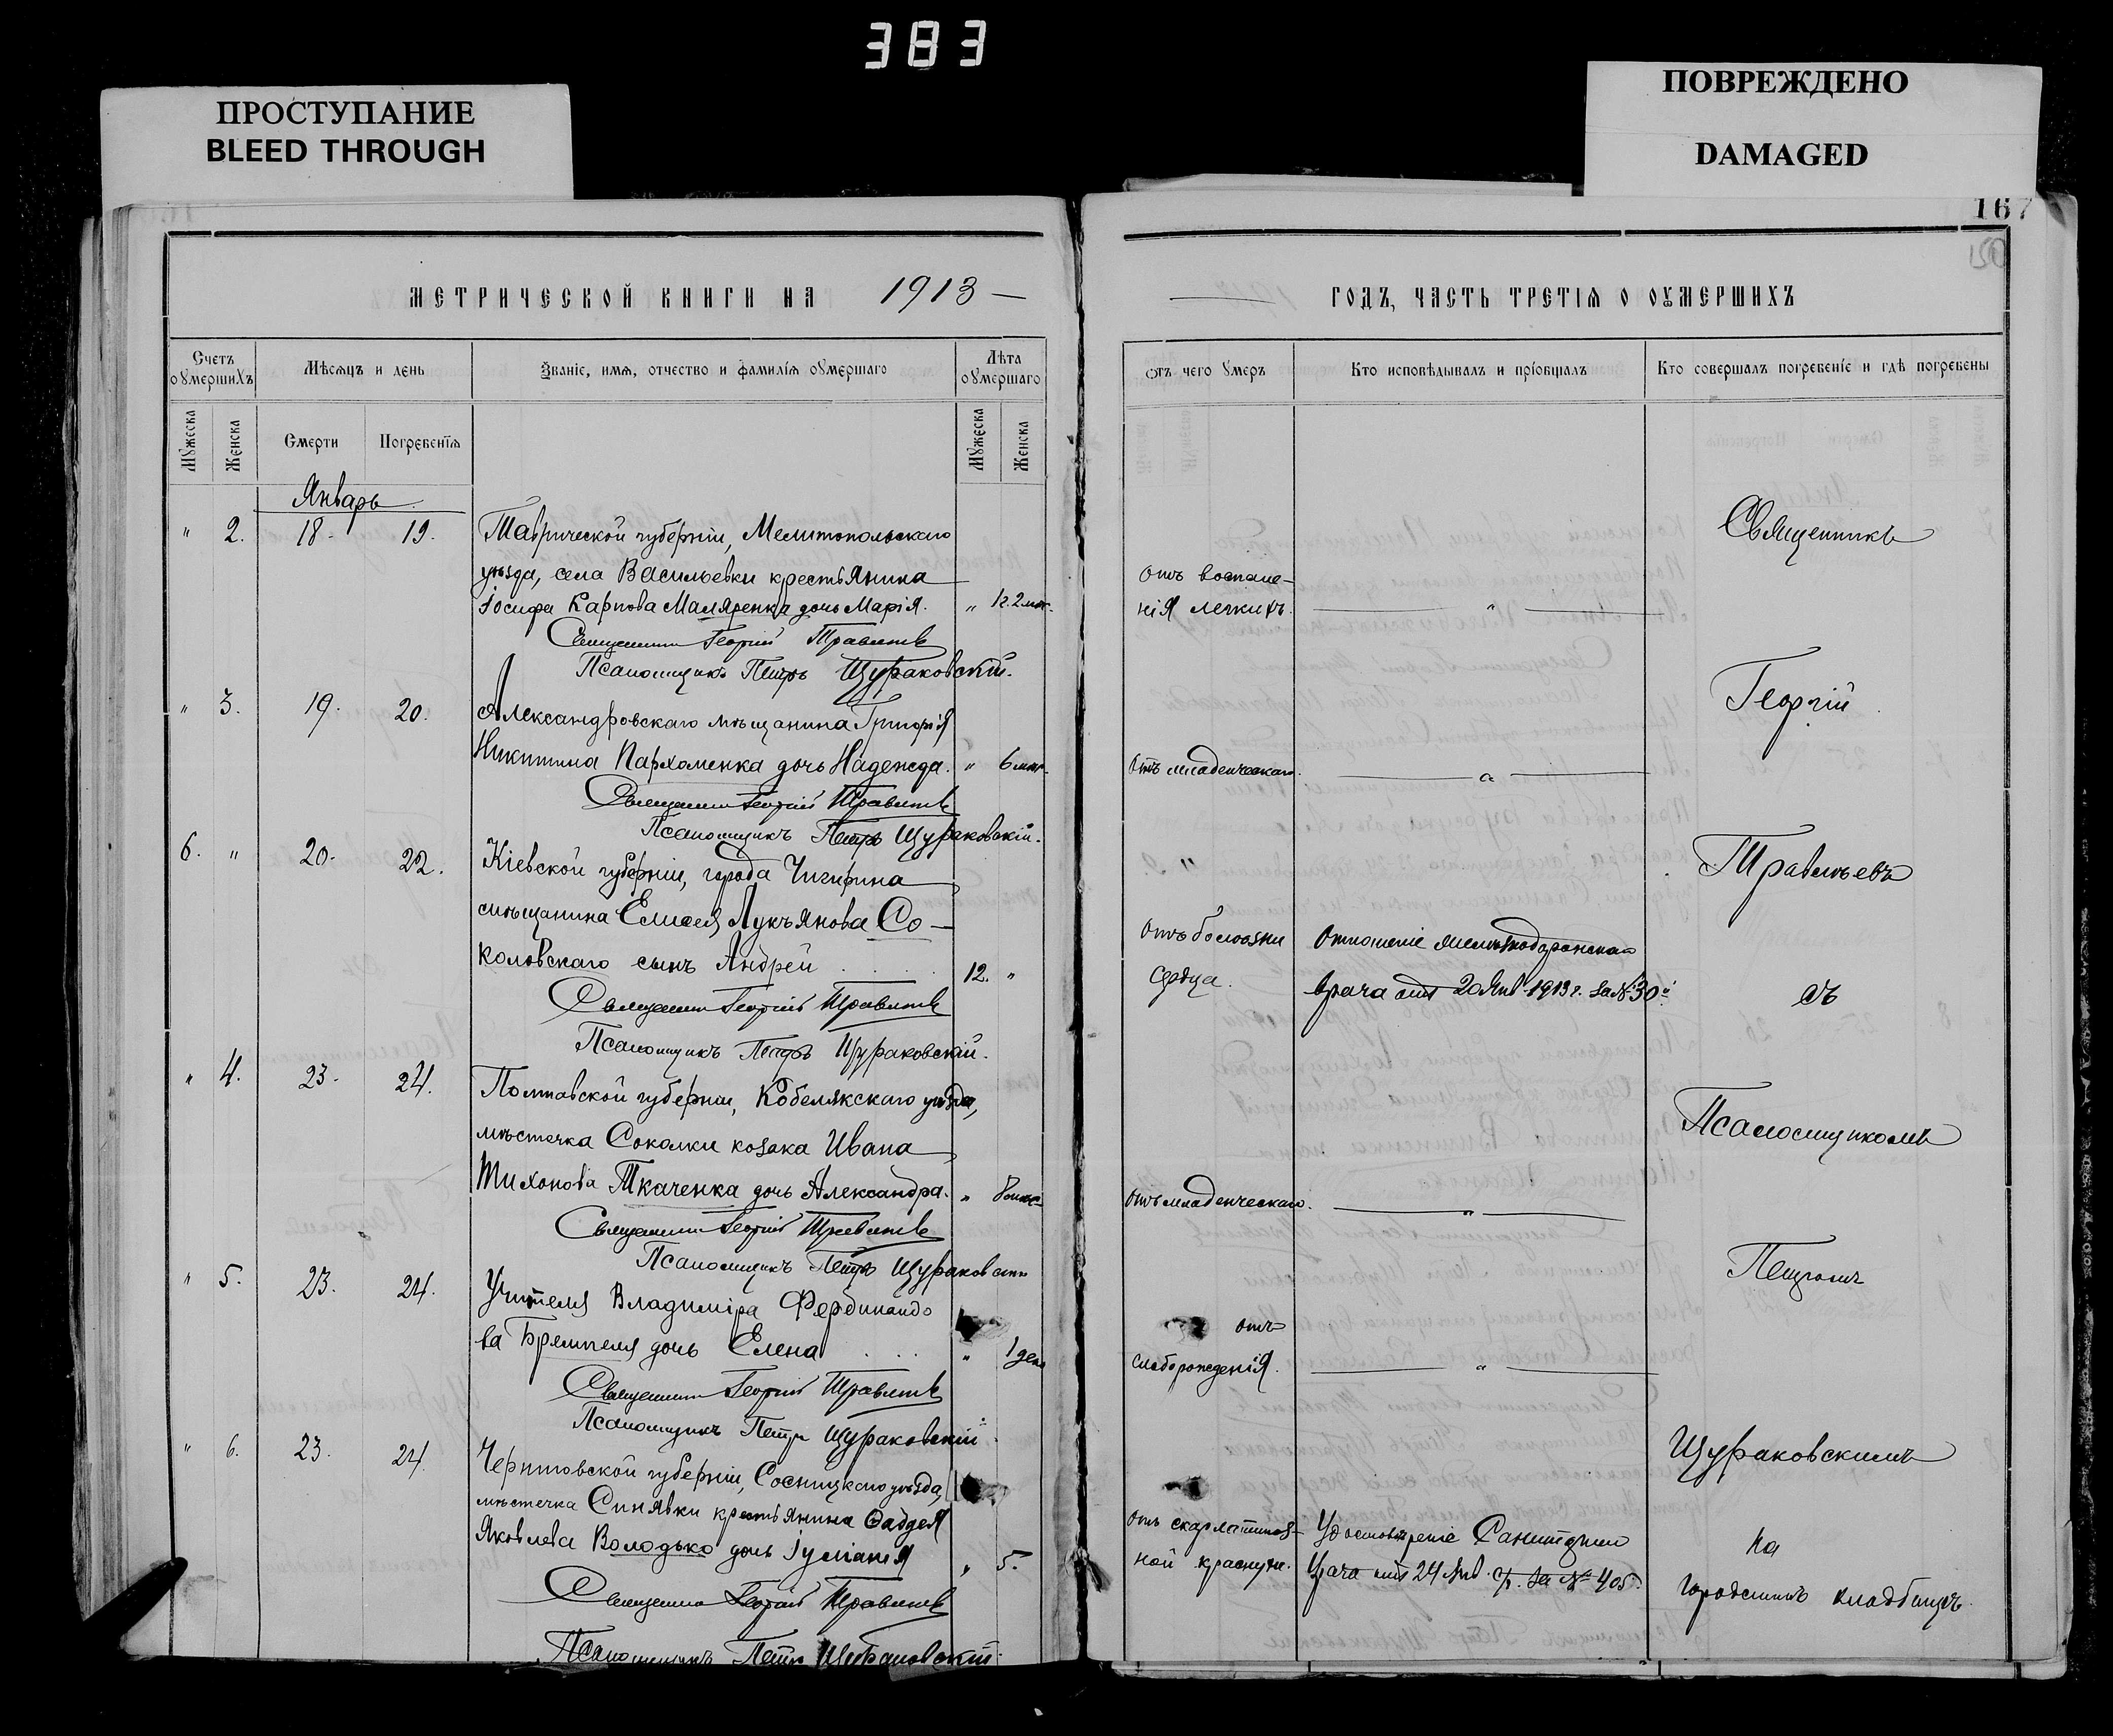 383
ПРОСТУПАНИЕ
BLEED THROUGH
ПОВРЕЖДЕНО
DAMAGED
167
150
МЕТРИЧЕСКОЙ КНИГИ НА 1913
Счетъ оумершихъ
Мѣсяцъ и день
Званіе, имя, отчество и фамилія оумершаго
Лѣта оумершаго
Мужеска
Женска
Смерти
Погребенія
Мужеска
Женска
Январь
" 2. 18. 19. Таврической губерніи, Мелитопольскаго
уѣзда, села Васильевки крестьянина
Іосифа Карпова Маляренка дочь Марія. " 1г. 2 мѣс.
Священникъ Георгій Травлевъ
Псаломщикъ Петръ Щураковскій.
" 3. 19. 20. Александровскаго мѣщанина Григорія
Никитина Пархоменка дочь Надежда. " 6 мѣс.
Священникъ Георгій
Псаломщикъ Петръ Щураковскій.
6. " 20. 22. Кіевской губерніи, города Чигирина
мѣщанина Елисея Лукъянова Со-
коловскаго сынъ Андрей . . . . 12. "
Священникъ Георгій
Псаломщикъ Петръ Щураковскій.
" 4. 23. 24. Полтавской губерніи, Кобелякскаго уѣзда,
мѣстечка Соколки козака Ивана
Тихонова Ткаченка дочь Александра. " 8 мѣс.
Священникъ Георгій
Псаломщикъ Петръ Щураковскій
" 5. 23. 24. Учителя Владиміра Фердинандо
ва дочь Елена . . . " 1 день
Священникъ Георгій
Псаломщикъ Петръ Щураковскій
" 6. 23. 24. Черниговской губерніи, Сосницкаго уѣзда,
мѣстечка Синявки крестьянина Фаддея
Яковлева Володько дочь " 5.
Священникъ Георгій
Псаломщикъ Петръ Щураковскій
ГОДЪ, ЧАСТЬ ТРЕТІЯ О ОУМЕРШИХЪ
Отъ чего умеръ
Кто исповѣдывалъ и пріобщалъ
Кто совершалъ погребеніе и гдѣ погребены
Священникъ
отъ воспале-
нія легкихъ. "
Георгій
отъ младенческаго. "
отъ болѣзни Отношеніе
сердца. врача отъ 20 Янв. 1913 г. за № 30
съ
Псаломщикомъ
отъ младенческаго. "
Петромъ
отъ
слаборожденія. "
Щураковскимъ
отъ скарлатиноз- Удостовѣреніе
ной краснухи. врача отъ 24 Янв. с/г. за № 405.
на
городскомъ кладбищѣ.